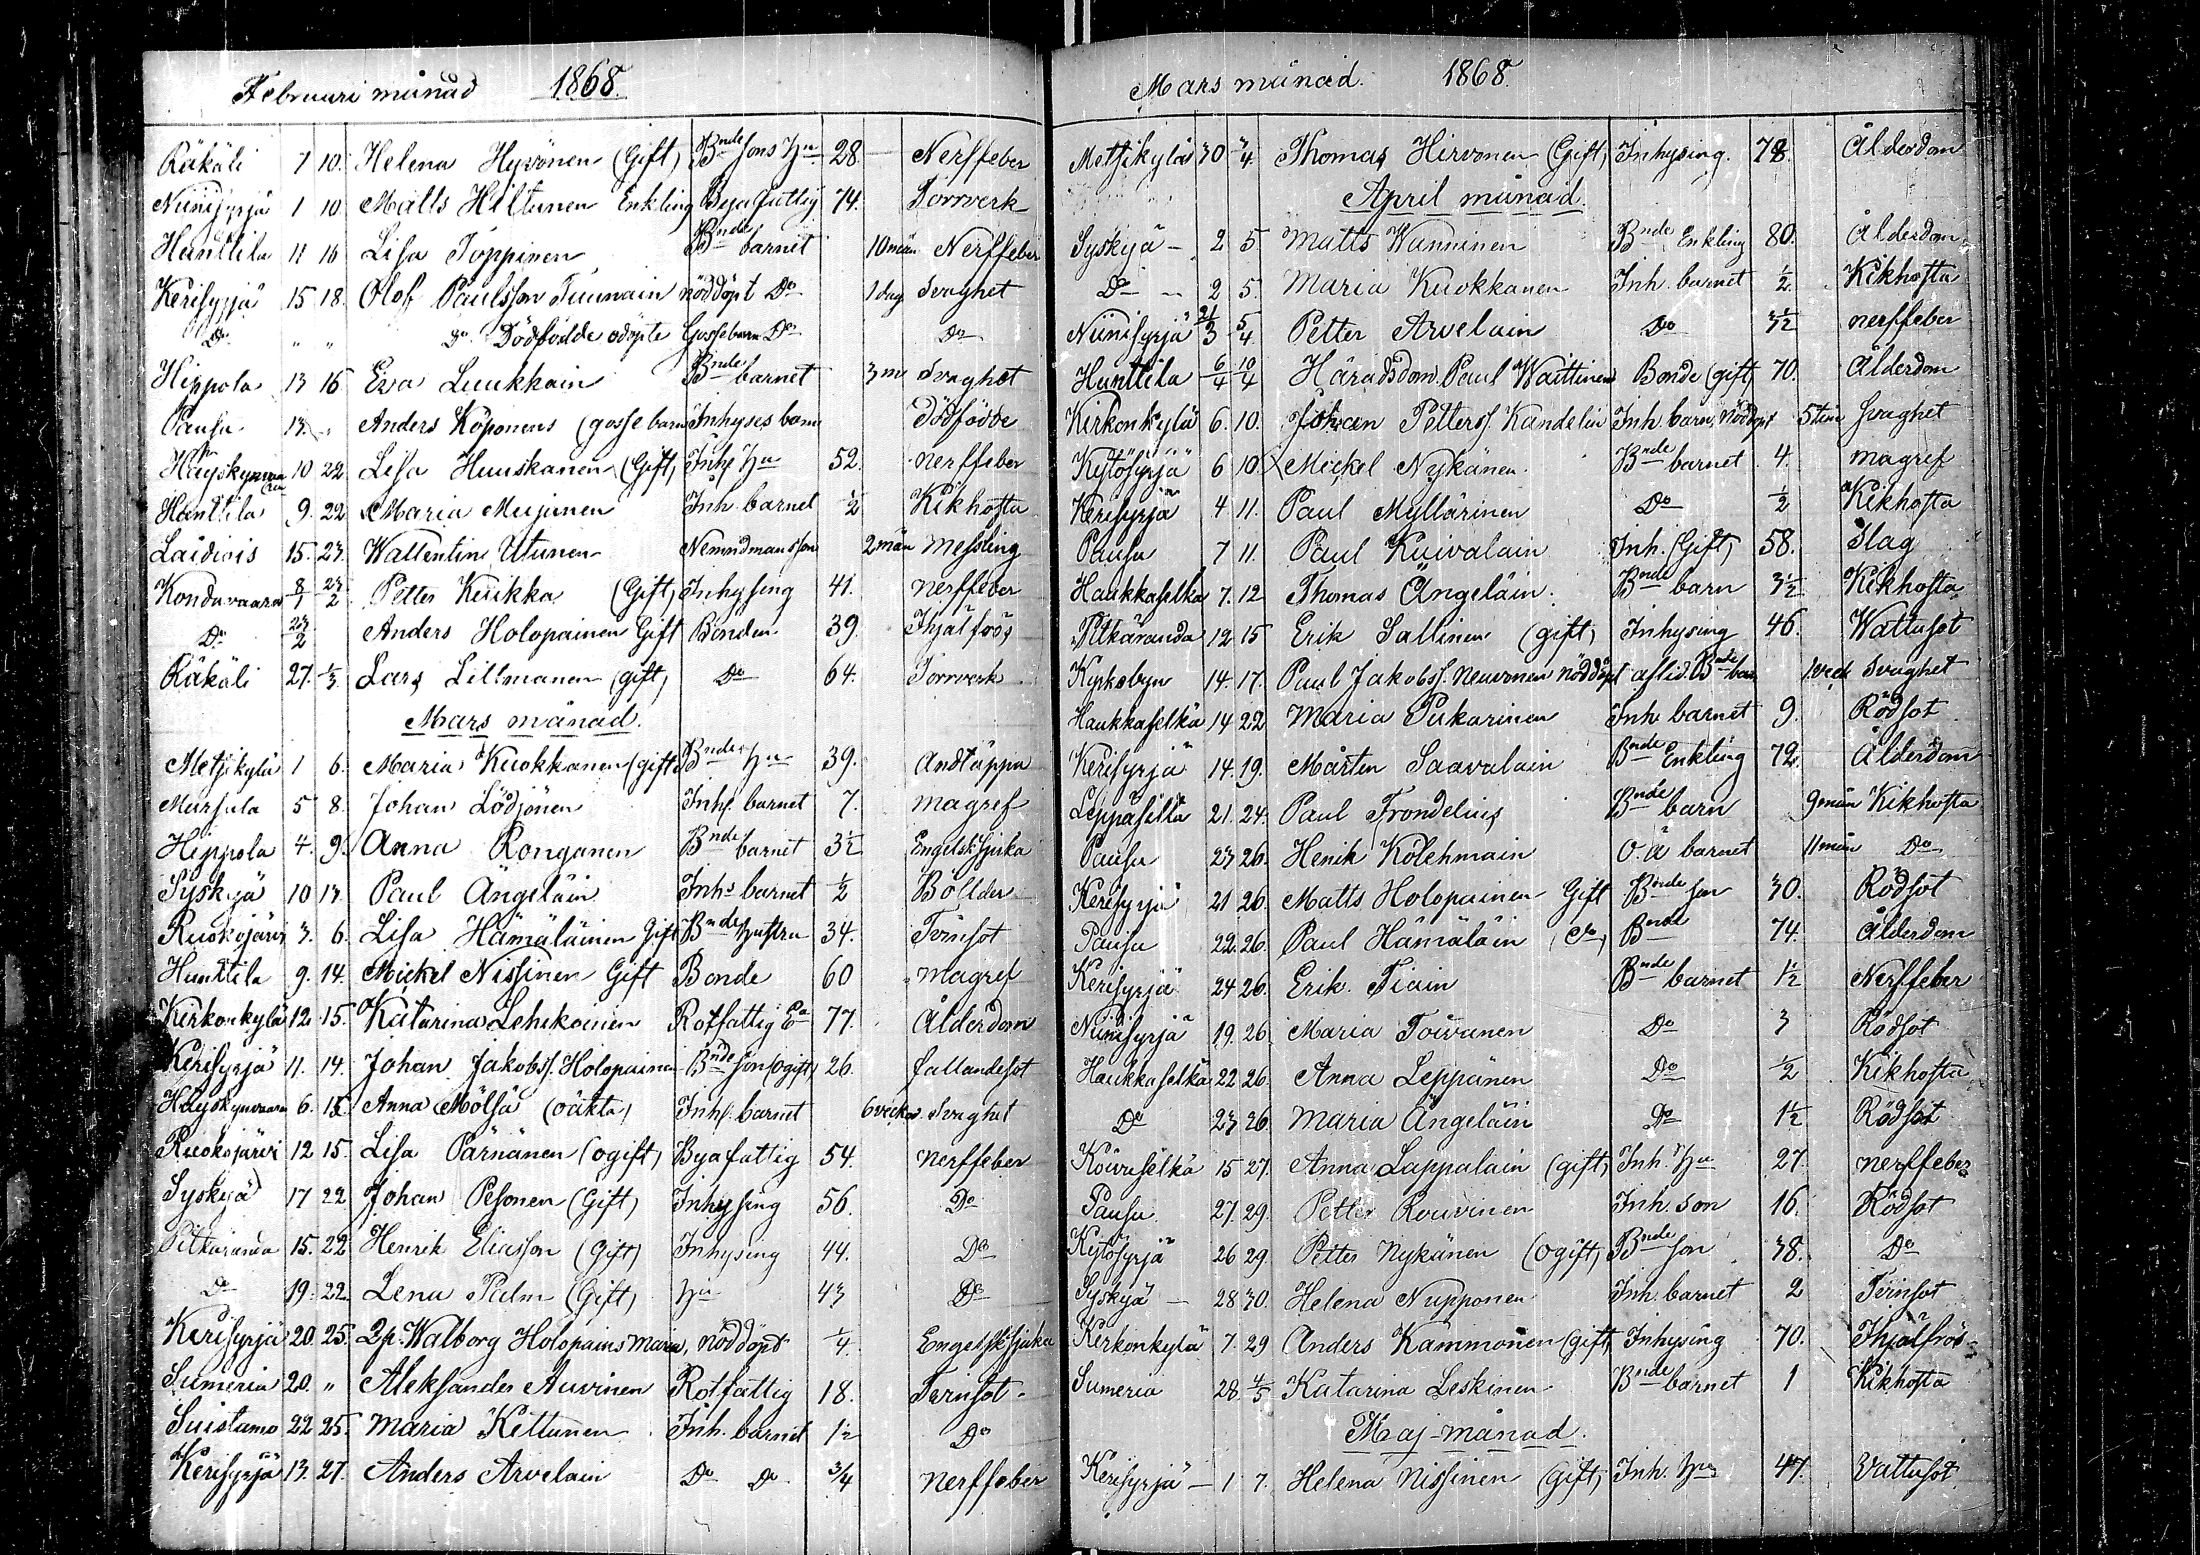 Februari månad 1868.
Räkäli 7 10. Helena Hyvönen (Gift) Bnde sons Hu 28 Nerffeber
Niinisyrjä 1 10 Matts Hiltunen Enkling Byafattig 74. Torrverk
Hunttila 11 16 Lisa Toppinen Bnde barnet 10 mån Nerffeber
Kerisyrjä 15 18. Olof Paulsson Tuunain nöddöpt Do 1 dag Svaghet
Do " " Do Dödfödde odöpte Gossebarn Do Do
Hippola 13 16 Eva Luukkain Bnde barnet 3 m Svaghet
Pausu 13. " Anders Köponens (gosse barn Inhyses barn dödfödde
Häyskynvaara 10 22 Lisa Huuskanen (Gift) Inhs Hu 52. nerffeber
Hunttila 9. 22 Maria Mujunen Inh. barnet ½ Kikhosta
Laidiois 15. 23. Wallentin Utunen Nemndmansson 2 mån Messling
Kondavaara 8/1 23/2 Petter Kuikka (Gift) Inhysing 41. nerffeber
Do 23/2 Anders Holopainen Gift Bonden 39. Ihjälfrös
Räkäli 27. 1/3. Lars Lillmanen (gift) Do 64. Torrverk
Mars månad.
Metsikylä 1 6. Maria Kuokkanen (gift) Bndes Hu 39. Andtäppa
Mursula 5 8. Johan Lödjönen Inhs. barnet 7. magref
Hippola 4. 9. Anna Ronganen Bnde barnet 3½ Engelsksjuka
Syskyä 10 13 Paul Ängeläin Inhs barnet ½ Bölder
Ruokojärvi 3. 6. Lisa Hämäläinen Gift Bnde hustru 34. Tvinsot
Hunttila 9. 14. Mickel Nissinen Gift Bonde 60 magref
Kirkonkylä 12 15. Katarina Lehikoinen Rotfattig Ea 77. Ålderdom
Kerisyrjä 11. 14. Johan Jakobss. Holopainen Bnde son (ogift) 26. fallandesot
Häyskynvaara 6. 15 Anna Mölsä (oäkta) Inhs. barnet 6 veckor Svaghet
Ruokojärvi 12 15. Lisa Pärnänen (ogift) Byafattig 54. nerffeber
Syskyä 17 22 Johan Pesonen (Gift) Inhysing 56. Do
Pitkäranda 15. 22 Henrik Eliasson (Gift) Inhysing 44. Do
Do 19. 22. Lena Palm (Gift) Hu 43 Do
Kerisyrjä 20. 25. Qp. Walborg Holopains Maria, nöddöpt ¼ Engelsksjuka
Sumeria 20. " Aleksander Auvinen Rotfattig 18. Tvinsot
Suistamo 22 25. Maria Kettunen Inh. barnet 1½ Do
Kerisyrjä 13. 27. Anders Arvelain Do Do ¾ nerffeber
Mars månad. 1868.
Metsikylä 30 3/4 Thomas Hirvonen (Gift) Inhysing. 78. Ålderdom
April månad.
Syskyä 2 5. Matts Wanninen Bnde Enkling 80. Ålderdom
Do 2 5. Maria Kuokkanen Inh. barnet ½ Kikhosta
Niinisyrjä 21/3 5/4 Petter Arvelain Do 3½ nerffeber
Hunttila 6/4 10/4 Häradsdom. Paul Waittinen Bonde (gift) 70. Ålderdom
Kirkonkylä 6. 10. Johan Petterss. Kandelin Inh. barn, Nöddöpt 5 tim Svaghet
Kytösyrjä 6 10 Mickel Nykänen Bnde barnet 4. magref
Kerisyrjä 4 11. Paul Myllärinen Do ½ Kikhosta
Pausu 7 11. Paul Kuivalain Inh. (Gift) 58. Slag
Haukkaselkä 7. 12 Thomas Ängeläin Bnde barn 3½ Kikhosta
Pitkäranda 12 15 Erik Sallinen (gift) Inhysing 46. Wattusot
Kyrkobyn 14. 17. Paul Jakobss. Neuvonen nöddöpt aflid. Bnde barn 1 veck Svaghet
Haukkaselkä 14 22 Maria Pukarinen Inh barnet 9. Rödsot
Kerisyrjä 14. 19. Mårten Saavalain Bnde Enkling 72. Ålderdom
Leppäsilta 21. 24. Paul Frondelius Bnde barn 9 mån Kikhosta
Pausu 23 26. Henrik Kolehmain O. ä barnet 11 mån Do
Kerisyrjä 21 26. Matts Holopainen Gift Bonde son 30. Rödsot
Pausu 22. 26. Paul Hämäläin (Do) Bnde 74. Ålderdom
Kerisyrjä 24 26. Erik Tiain Bnde barnet 1½ Nerffeber
Niinisyrjä 19. 26 Maria Toivanen Do 3 Rödsot
Haukkaselkä 22 26. Anna Leppänen Do ½ Kikhosta
Do 23 26. Maria Ängeläin Do 1½ Rödsot
Koivuselkä 15 27. Anna Lappalain (gift) Inh. Hu 27 nerffeber
Pausu 27. 29. Petter Rouvinen Inh. son 16. Rödsot
Kytösyrjä 26 29. Petter Nykänen (ogift) Bnde son 38. Do
Syskyä 28 30. Helena Nupponen Inh. barnet 2 Tvinsot
Kirkonkylä 7. 29 Anders Kammonen (gift) Inhysing 70. Ihjälfrös
Sumeria 28. 4/5 Katarina Leskinen Bnde barnet 1 Kikhosta
Maj månad.
Kerisyrjä 1 7. Helena Nissinen (Gift) Inh. Hu 47. Vattusot